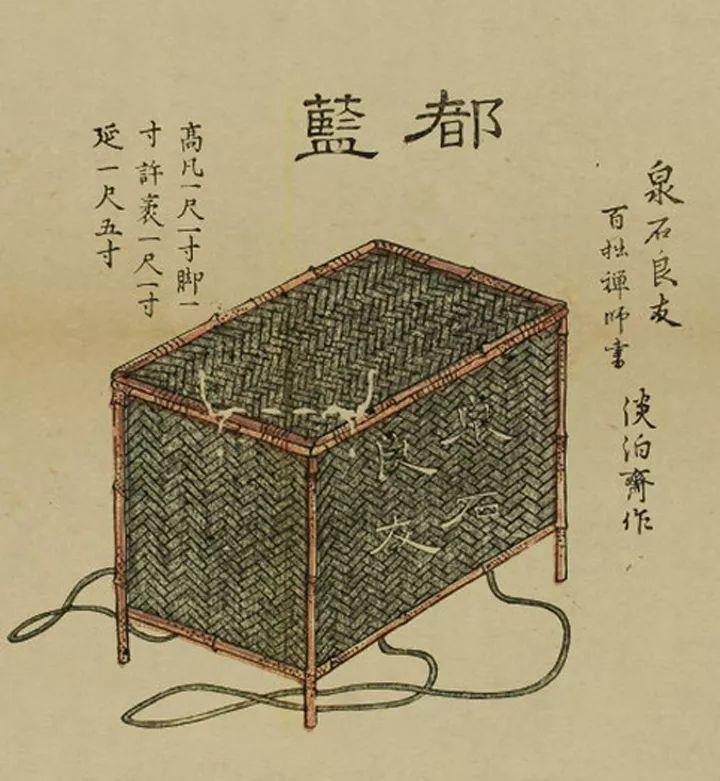 都藍
泉石良友
百拙禅師書
淡泊齋作
高凡一尺一寸脚一
寸許袤一尺一寸
延一尺五寸
泉石
良友